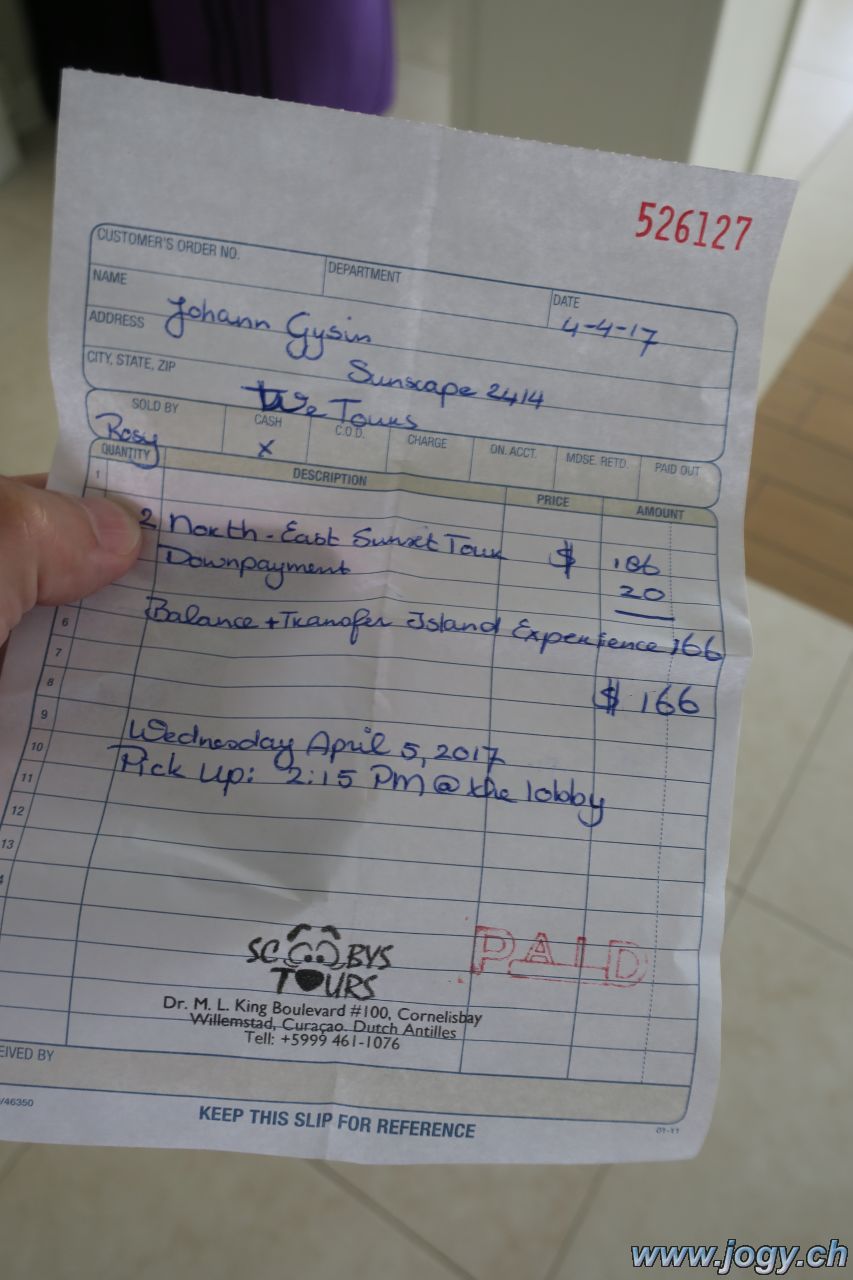 526127
CUSTOMER'S ORDER NO.
DEPARTMENT
DATE
4-4-17
NAME
Johann Gysin
ADDRESS
Sunscape 2414
CITY, STATE, ZIP
We Tours
SOLD BY
CASH
C.O.D.
CHARGE
ON. ACCT.
MDSE. RETD.
PAID OUT
Rosy
X
QUANTITY
DESCRIPTION
PRICE
AMOUNT
1
2 North-East Sunset Tour $ 186
Downpayment 20
6
Balance + Transfer Island Experience 166
7
8
$ 166
9
10
Wednesday April 5, 2017
11
Pick Up: 2:15 PM @ the lobby
12
13
PAID
SCOOBYS
TOURS
Dr. M. L. King Boulevard #100, Cornelisbay
Willemstad, Curaçao. Dutch Antilles
Tell: +5999 461-1076
EIVED BY
/46350
KEEP THIS SLIP FOR REFERENCE
01-11
www.jogy.ch